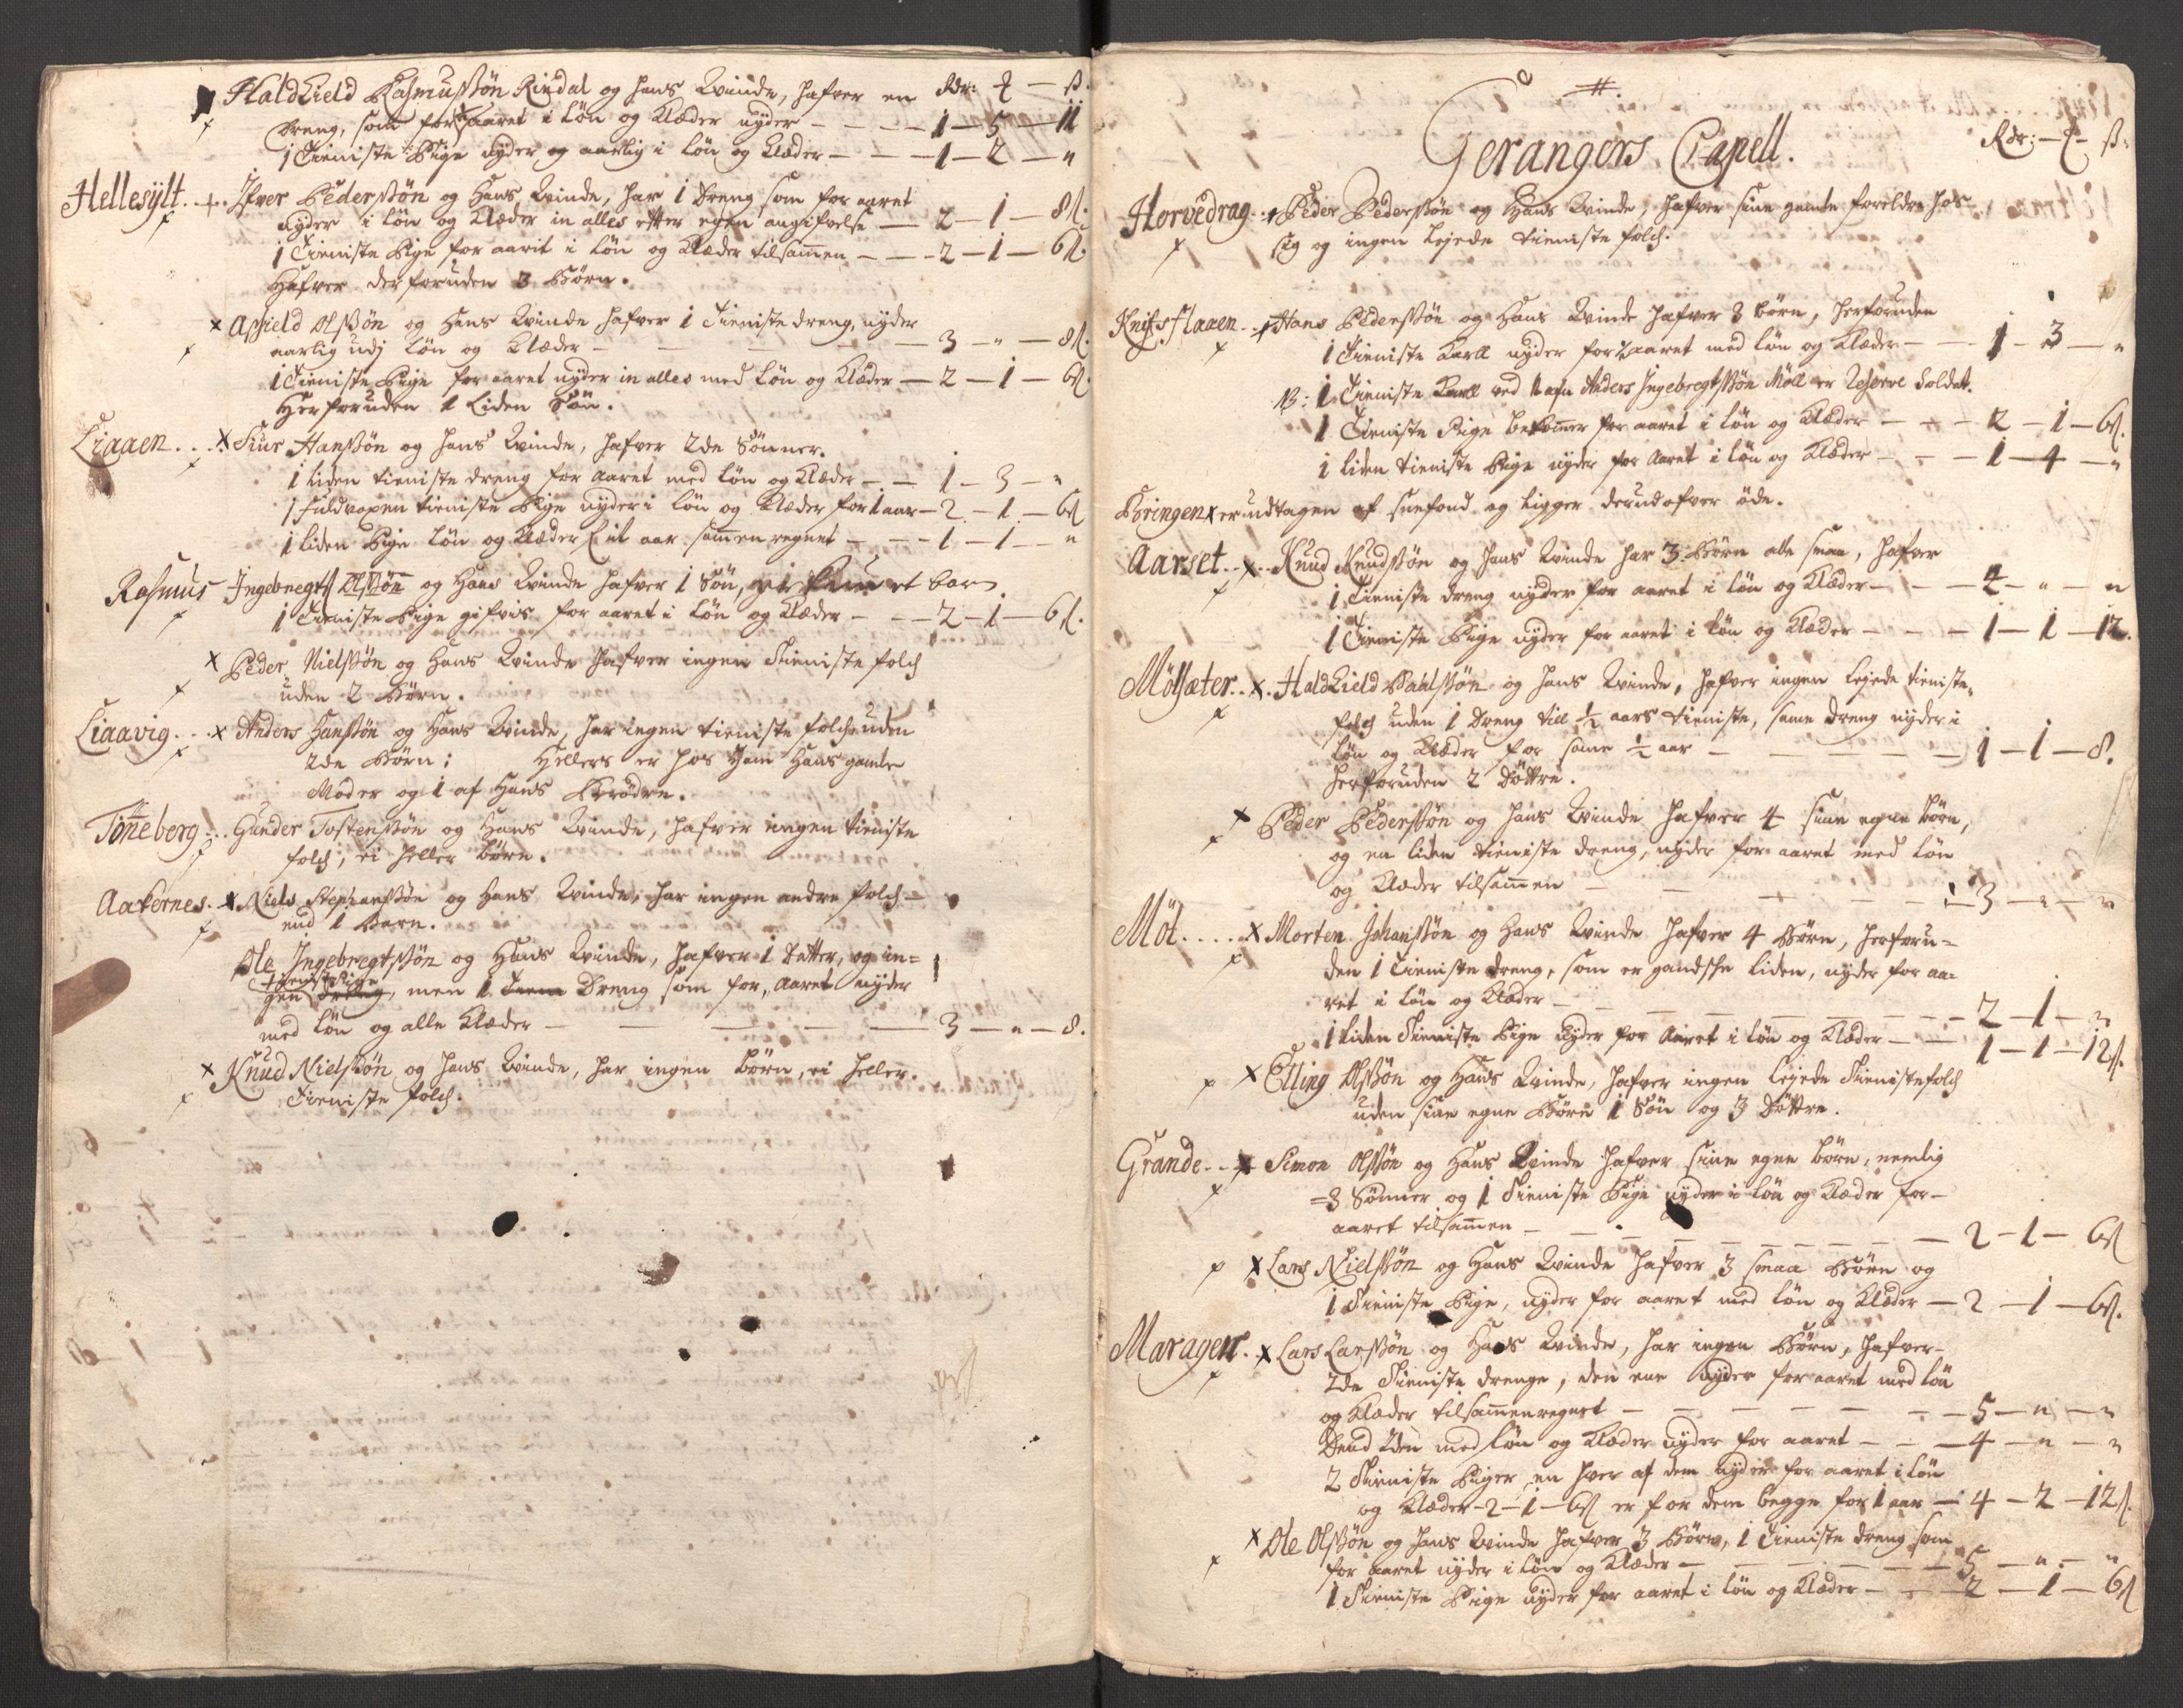 Haldkield Rasmussøn Rindal og hans Kvinde, hafver en Rdr: ℔ — ß.
Dreng, som for aaret i Løn og Klæder nyder — — — 1 — 5 — 11
1 Tieniste Pige nyder og aarlig i Løn og Klæder — — — 1 — 2 — "
Hellesÿlt. . + . Ifver Pederssøn og Hans Kvinde, har 1 Dreng som for aaret
nyder i Løn og Klæder in alles efter egen angifvelse — 2 — 1 — 8ß.
1 Tieniste Pige for aarit i Løn og Klæder tilsam̄en — — — 2 — 1 — 6ß.
Hafver derforuden 3 Børn.
x Olssøn og Hans Kvinde hafver 1 Tieniste dreng, nyder
aarlig udj Løn og Klæder — — — — — 3 — " — 8ß.
1 Tieniste Pige for aaret nyder in alles med Løn og Klæder — 2 — 1 — 6ß.
Herforuden 1 Liden Søn.
Liaaen . . . x Siur Hanssøn og hans Kvinde, hafver 2de Sønner.
1 Liden tieniste dreng for Aaret med Løn og Klæder — — 1 — 3 — "
1 fuldvoxen tieniste Pige nyder i Løn og Klæder for 1 aar — 2 — 1 — 6ß
1 liden Pige Løn og Klæder Eit aar sam̄enregnet — — — 1 — 1 — "
Rasmus Ingebregts Olssøn og Hans Kvinde hafver 1 Søn, et barn.
1 Tieniste Pige gifves for aaret i Løn og Klæder — — — 2 — 1 — 6ß.
x Peder Nielssøn og Hans Kvinde hafver ingen Tieniste folch
uden 2 Børn.
Liaavig . . . x Anders Hanssøn og Hans Kvinde, har ingen tieniste folch uden
2de Børn; Hellers er hos Ham Hans gamle
Moder og 1 af Hans Brødre.
Tön̄eberg . . . Gunder Tostenssøn og Hans Kvinde, hafver ingen tieniste
folch, ei heller børn.
Aakernes. x Niels Stephanssøn og Hans Kvinde, har ingen andre folch
end 1 Barn.
Ole Ingebregtssøn og Hans Kvinde, hafver 1 datter, og in=
tieniste Pige
gen dreng, men 1 Dreng som for Aaret nyder
med Løn og alle Klæder — — — — — 3 — " — 8.
x Knud Nielssøn og hans Kvinde, har ingen Børn, ei heller
Tieniste folch.
#.
Gerangers Capell.
Rdr: — ℔ — ß:
Horvedrag. . x Peder Pederssøn og Hans Kvinde, hafver sine gamle foreldre hos
sig og ingen Leiede tieniste folch.
Knifsflaaen . . x Hans Pederssøn og Hans Kvinde hafver 3 børn, herforuden
1 Tieniste Karll nyder for ½ aaret med Løn og Klæder — — 1 — 3 — "
NB: 1 Tieniste Karll ved Nafn Anders Ingebregtssøn Möll er Reserve Soldat.
1 Tieniste Pige bekom̄er for aaret i Løn og Klæder — — — 2 — 1 — 6ß.
1 liden tieniste Pige nyder for Aaret i Løn og Klæder — — — 1 — 4 — "
Bringen x er undtagen af snefond og ligger derudofver øde.
Aarset . . x . . Knud Knudssøn og hans Kvinde har 3 Børn alle smaa, hafver
1 Tieniste dreng nyder for aaret i Løn og Klæder — — — 4 — " — "
1 Tieniste Pige nyder for aaret i Løn og Klæder — — — 1 — 1 — 12.
Mölsæter . . x . Haldkield Pahlssøn og hans Kvinde, hafver ingen Leiede tieniste=
folch uden 1 Dreng till ½ aars tieniste, same dreng nyder i
Løn og Klæder for same ½ aar — — — — 1 — 1 — 8.
herforuden 2 Döttre.
x Peder Pederssøn og hans Kvinde hafver 4 sine egne børn,
og en liden tieniste dreng, nyder for aaret med Løn
og Klæder tilsam̄en — — — — — 3 — " — "
Möl . . . . x Morten Johanssøn og Hans Kvinde hafver 4 Børn, herforu=
den 1 Tieniste dreng, som er gandsche liden, nyder for aa=
ret i Løn og Klæder — — — — — 2 — 1 — "
1 liden Tieniste Pige nyder for Aaret i Løn og Klæder — — 1 — 1 — 12ß.
x Elling Olssøn og Hans Kvinde, hafver ingen Leiede Tienistefolch
uden sine egne Børn 1 Søn og 3 Döttre.
Grande . . x Simon Olssøn og Hans Kvinde hafver sine egne børn, nemlig
=3 Sønner og 1 Tieniste Pige nyder i Løn og Klæder for
aaret tilsam̄en — — — — — 2 — 1 — 6ß
x Lars Nielssøn og Hans Kvinde hafver 3 smaa Børn og
1 Tieniste Pige, nyder for aaret med Løn og Klæder — 2 — 1 — 6ß.
Maragen. . x Lars Larssøn og Hans Kvinde, har ingen Børn, hafver
2de Tieniste drenge, den ene nyder for aaret med Løn
og Klæder tilsam̄enregnet — — — — — 5 — " — "
Dend 2den med Løn og Klæder nyder for aaret — — — 4 — " — "
2 Tieniste Piger en hver af dem nyder for aaret i Løn
og Klæder — 2 — 1 — 6ß er for dem begge for 1 aar — 4 — 2 — 12ß.
x Ole Olssøn og Hans Kvinde hafver 3 Børn, 1 Tieniste dreng som
for aaret nyder i Løn og Klæder — — — — 5 — " — "
1 Tieniste Pige nyder for aaret i Løn og Klæder — — — 2 — 1 — 6ß